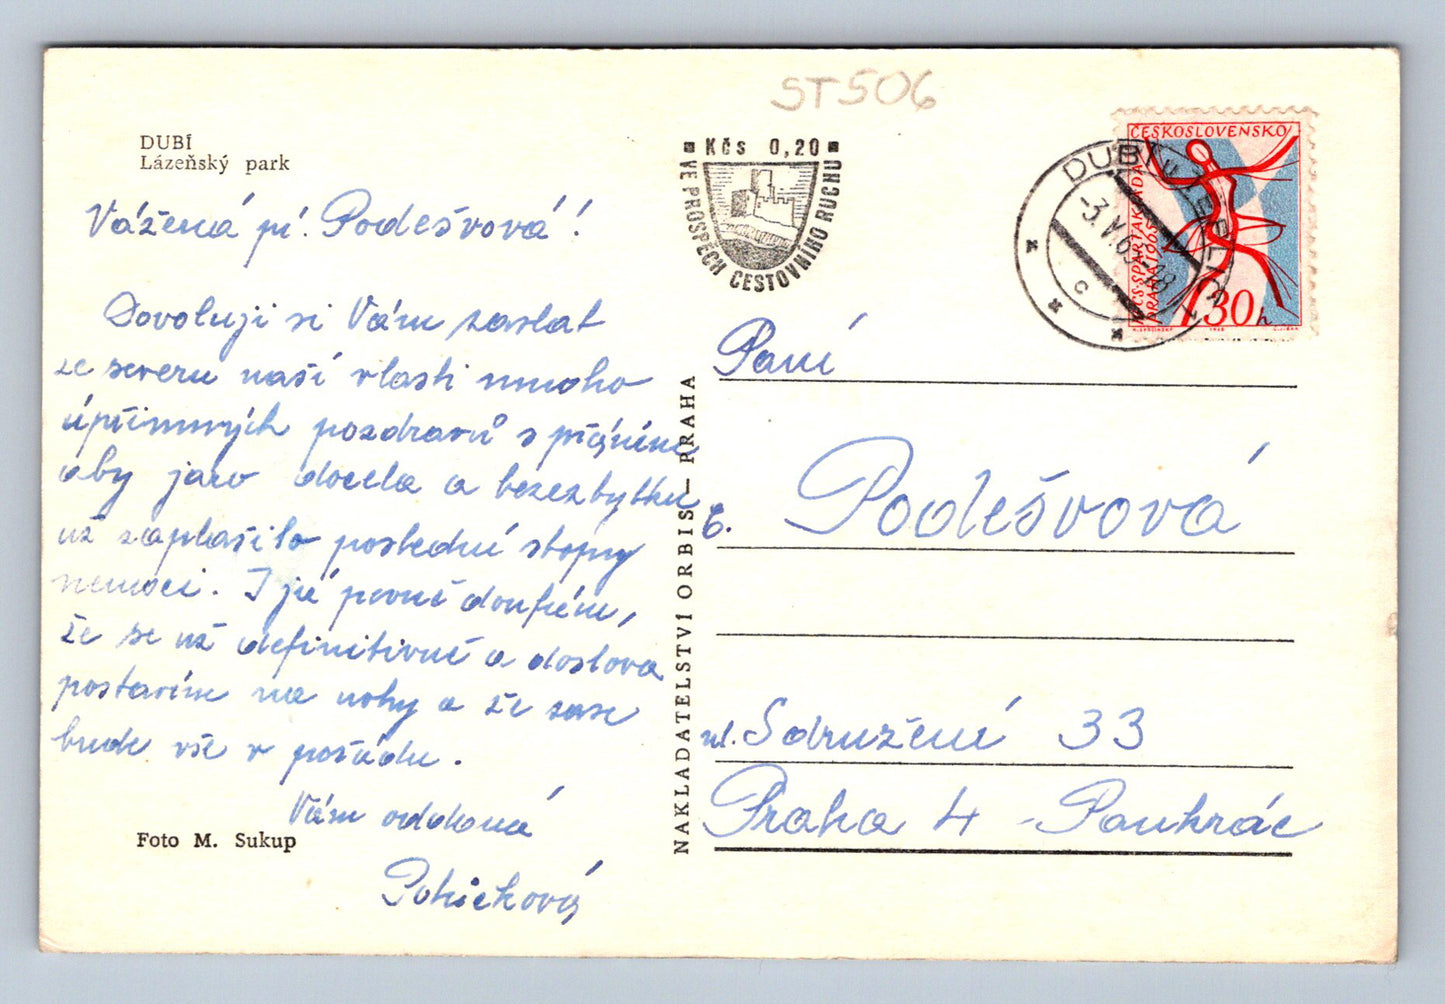 ST506
DUBÍ
Lázeňský park
Vážená pí. Podešvová!
Dovoluji si Vám zaslat
ze severu naší vlasti mnoho
úpřimných pozdravů s přáním
aby jaro docela a bezezbytku
už zaplašilo poslední stopy
nemoci. I já pevně doufám,
že se už definitivně a doslova
postavím na nohy a že zase
bude vše v pořádu.
Vám oddaná
Foto M. Sukup
NAKLADATELSTVÍ ORBIS – PRAHA
Kčs 0,20
VE PROSPĚCH CESTOVNÍHO RUCHU
ČESKOSLOVENSKO
ČS·SPARTAKIÁDA
PRAHA 1965
30 h
DUBÍ u TEPLIC
-3.VI.65-18
c
Paní
Podešvová
ul. Sdružení 33
Praha 4 - Pankrác